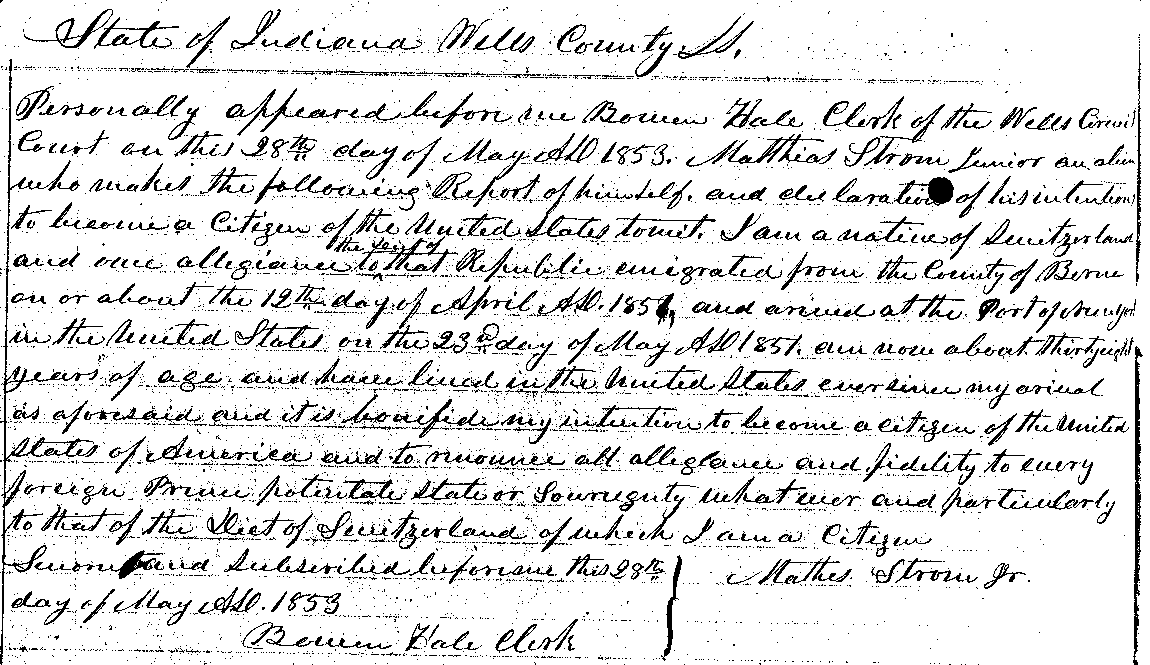 State of Indiana Wells County Ss.
Personally appeared before me Bowen Hale Clerk of the Wells Circuit
Court on this 28th day of May AD 1853. Matthias Strom Junior an alien
who makes the following Report of himself. and declaration of his intention
to become a Citizen of the United States towit. I am a native of Switzerland
and owe allegiance to the Diet of that Republic emigrated from the County of Berne
on or about the 12th day of April AD. 1851, and arived at the Port of Newyork
in the United States on the 23d day of May AD 1851. am now about thirtyeight
years of age and have lived in the United States ever since my arival
as aforesaid and it is bonifide my intention to become a citizen of the United
States of America and to renounce all allegiance and fidelity to every
foreign Prince potentate state or Sovereignty what ever and particularly
to that of the Diet of Switzerland of which I am a Citizen
Sworn to and Subscribed before me this 28th
day of May AD. 1853
Mathes Strom Jr.
Bowen Hale Clerk